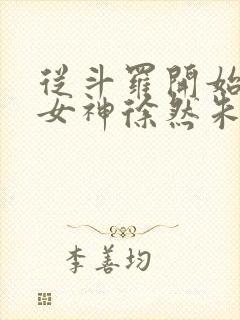 從斗羅開始
女神徐然朱
李善均